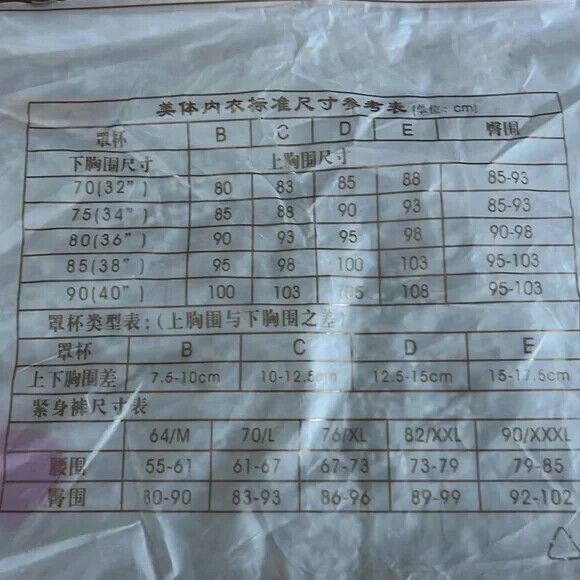 美体内衣标准尺寸参考表(单位: cm)
罩杯 B C D E 臀围
下胸围尺寸 上胸围尺寸
70(32") 80 83 85 88 85-93
75(34") 85 88 90 93 85-93
80(36") 90 93 95 98 90-98
85(38") 95 98 100 103 95-103
90(40") 100 103 105 108 95-103
罩杯类型表:(上胸围与下胸围之差)
罩杯 B C D E
上下胸围差 7.5-10cm 10-12.5cm 12.5-15cm 15-17.5cm
紧身裤尺寸表
64/M 70/L 76/XL 82/XXL 90/XXXL
腰围 55-61 61-67 67-73 73-79 79-85
臀围 80-90 83-93 86-96 89-99 92-102